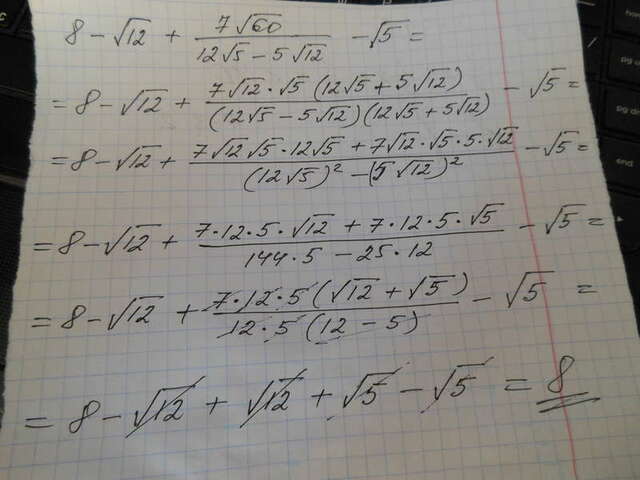 8 - √12 + 7√60 / (12√5 - 5√12) - √5 =
= 8 - √12 + 7√12 · √5 (12√5 + 5√12) / (12√5 - 5√12)(12√5 + 5√12) - √5 =
= 8 - √12 + (7√12 √5 · 12√5 + 7√12 · √5 · 5 · √12) / ((12√5)² - (5√12)²) - √5 =
= 8 - √12 + (7·12·5·√12 + 7·12·5·√5) / (144·5 - 25·12) - √5 =
= 8 - √12 + 7·12·5(√12 + √5) / 12·5(12 - 5) - √5 =
= 8 - √12 + √12 + √5 - √5 = 8
end